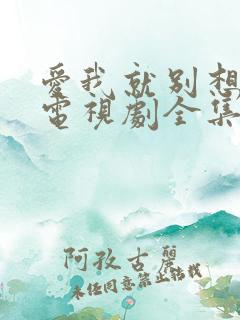 愛我就別想
電視劇全集
阿孜古麗
未经同意禁止转载